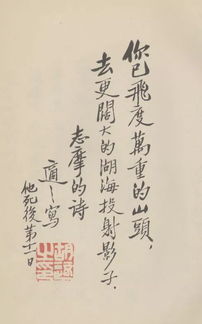 你已飛度萬重的山頭，
去更闊大的湖海投射影子．
志摩的诗
適之寫
他死後第十一日
胡適之印